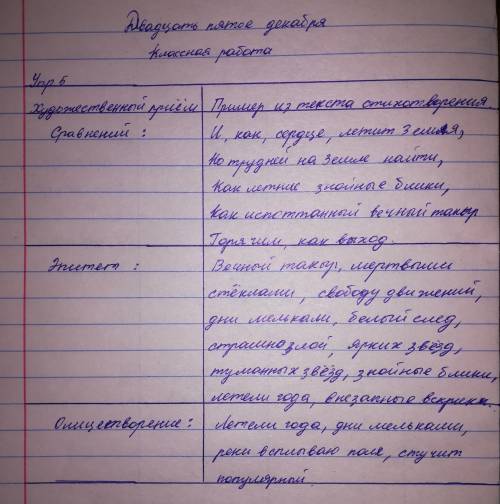 Двадцать пятое декабря
Классная работа
Упр 5
Художественный приём Пример из текста стихотворения
Сравнений : И, как, сердце, летит Земля,
Но трудней на Земле найти,
Как летние знойные блики,
Как испоттанный вечный такыр
Горячим, как выход.
Эпитет : Вечной такыр, мертвыми
стёклами, свободу движений,
дни мелькали, белый след,
страшно злой, ярких звёзд,
туманных звёзд, знойные блики,
летели года, внезапные вскрики.
Олицетворение : Летели года, дни мелькали,
реки всплываю поле, стучит
популярной.